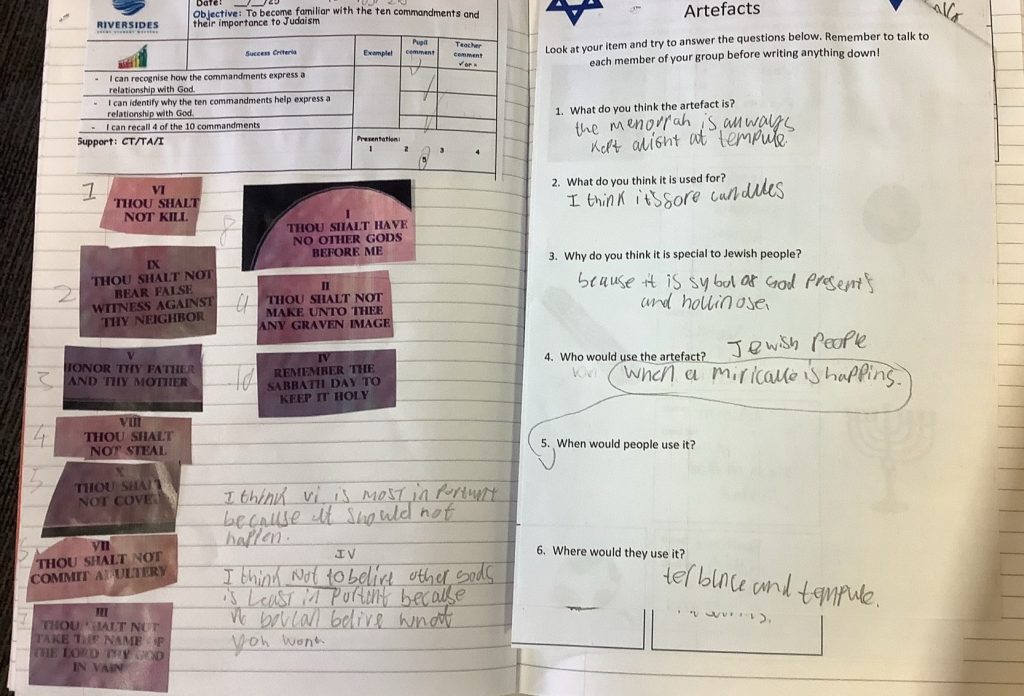 RIVERSIDES
Date: / /
Objective: To become familiar with the ten commandments and
their importance to Judaism
Success Criteria
Example!
Pupil
comment
Teacher
comment
✓or ×
- I can recognise how the commandments express a
relationship with God.
- I can identify why the ten commandments help express a
relationship with God.
- I can recall 4 of the 10 commandments
Support: CT/TA/I
Presentation:
1 2 3 4
1
VI
THOU SHALT
NOT KILL
2
IX
THOU SHALT NOT
BEAR FALSE
WITNESS AGAINST
THY NEIGHBOR
3
V
HONOR THY FATHER
AND THY MOTHER
4
VIII
THOU SHALT
NOT STEAL
5
X
THOU SHALT
NOT COVET
VII
THOU SHALT NOT
COMMIT ADULTERY
III
THOU SHALT NOT
TAKE THE NAME OF
THE LORD THY GOD
IN VAIN
8
I
THOU SHALT HAVE
NO OTHER GODS
BEFORE ME
II
THOU SHALT NOT
MAKE UNTO THEE
ANY GRAVEN IMAGE
10
IV
REMEMBER THE
SABBATH DAY TO
KEEP IT HOLY
I think vi is most in portunt
because it should not
happen.
IV
I think Not to belive other gods
is least in portent because
belive
Artefacts
Look at your item and try to answer the questions below. Remember to talk to
each member of your group before writing anything down!
1. What do you think the artefact is?
the menorrah is anways
kept alight at tempule.
2. What do you think it is used for?
I think it's fore candules
3. Why do you think it is special to Jewish people?
becuase it is sybol of God presents
and
4. Who would use the artefact? Jewish People
when a miricalle is happing.
5. When would people use it?
6. Where would they use it?
and tempule.